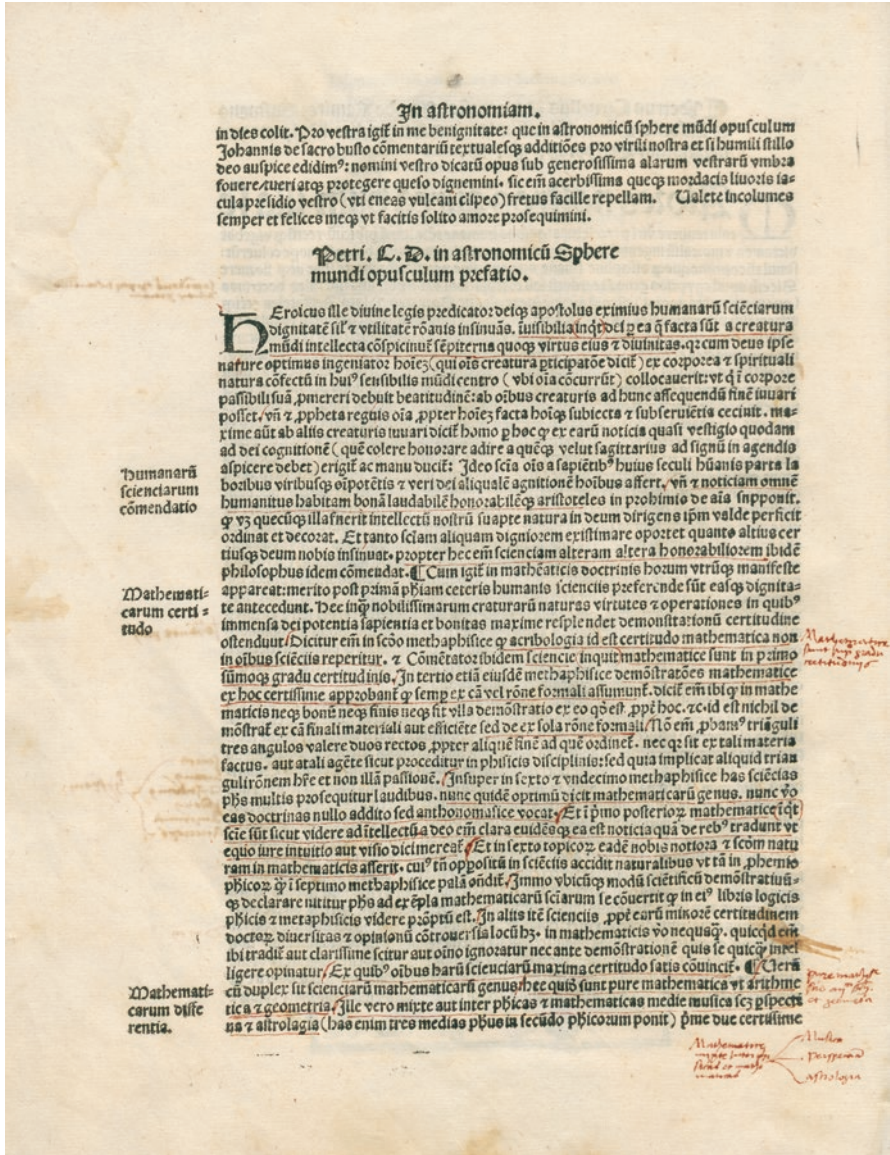 In astronomiam.
in dies colit. Pro vestra igit̃ in me benignitate: que in astronomicũ sphere mũdi opusculum
Johannis de sacro busto cõmentariũ textualesqʒ additiões pro virili nostra et si humili stillo
deo auspice edidimꝰ: nomini vestro dicatũ opus sub generosissima alarum vestrarũ vmbra
fouere/tueri atqʒ protegere queso dignemini. sic em̃ acerbissima queqʒ mordacis liuoris ia-
cula presidio vestro (vti eneas vulcani clipeo) fretus facille repellam. Ualete incolumes
semper et felices meqʒ vt facitis solito amore prosequimini.
Petri. C. D. in astronomicũ Sphere
mundi opusculum prefatio.
hEroicus ille divine legis predicator deiqʒ apostolus eximius humanarũ sciẽciarum
dignitatẽ sil̃ ⁊ vtilitatẽ rõanis insinuãs. ĩuisibilia inq̃t dei ꝑ ea q̃ facta sũt a creatura
mũdi intellecta cõspiciunt̃ sẽpiterna quoqʒ virtus eius ⁊ divinitas. qꝛ cum deus ipse
nature optimus ingeniator hoiẽʒ (qui oĩs creatura ꝑticipatõe dicit̃) ex corporea ⁊ spirituali
natura cõfectũ in huiꝰ sensibilis mũdi centro (vbi oĩa cõcurrũt) collocauerit: vt q̃ ĩ corpore
passibili suã ꝓmereri debuit beatitudinẽ: ab oĩbus creaturis ad hunc assequendũ finẽ iuuari
posset. vñ ⁊ ꝓpheta regius oĩa ꝓpter hoiẽʒ facta hoĩqʒ subiecta ⁊ subseruiẽtia cecinit. ma-
xime aũt ab aliis creaturis iuuari dicit̃ homo ꝑ hoc ꝙ ex earũ noticia quasi vestigio quodam
ad dei cognitionẽ (quẽ colere honorare adire a quẽqʒ velut sagittarius ad signũ in agendis
aspicere debet) erigit̃ ac manu ducit̃: Ideo scĩa oĩs a sapiẽtibꝰ huius seculi hũanis parta la
boribus viribusqʒ oĩpotẽtis ⁊ veri dei aliqualẽ agnitionẽ hoĩbus affert. vñ ⁊ noticiam omnẽ
humanitus habitam bonã laudabilẽ honorabilẽqʒ aristoteles in prohimio de aĩa snpponit.
ꝙ vʒ quecũqʒ illa fuerit intellectũ nostrũ suapte natura in deum dirigens ip̃m valde perficit
ordinat et decorat. Et tanto scĩam aliquam digniorem existimare oportet quanto altius cer
tiusqʒ deum nobis insinuat. propter hec em̃ scienciam alteram altera honorabiliorem ibidẽ
philosophus idem cõmeudat. ¶ Cum igit̃ in mathẽaticis doctrinis horum vtrũqʒ manifeste
appareat: merito post primã ph̃iam ceteris humanis scienciis preferende sũt easqʒ dignita-
te antecedunt. Hec inqʒ nobilissimarum craturarũ naturas virtutes ⁊ operationes in quibꝰ
immensa dei potentia sapientia et bonitas maxime resplendet demonstrationũ certitudine
ostenduut/Dicitur em̃ in scõo methaphisice ꝙ acribologia id est certitudo mathematica non
in oĩbus sciẽciis reperitur. ⁊ Cõmẽtator ibidem sciencie inquit mathematice sunt in primo
sũmoqʒ gradu certitudinis. In tertio etiã eiusdẽ methaphisice demõstratões mathematice
ex hoc certissime approbant̃ ꝙ semꝑ ex cã vel rõne formali assumunt̃. dicit̃ em̃ ibi ꝙ in mathe
maticis neqʒ bonũ neqʒ finis neqʒ fit vlla demõstratio ex eo qõ est ꝓpt̃ hoc. ⁊c. id est nichil de
mõstrat̃ ex cã finali materiali aut efficiẽte sed de ex sola rõne formali/Nõ em̃ ꝓbamꝰ triãguli
tres angulos valere duos rectos ꝓpter aliquẽ finẽ ad quẽ ordinet̃. nec qꝛ sit ex tali materia
factus. aut a tali agẽte sicut proceditur in phisicis disciplinis: sed quia implicat aliquid trian
guli rõnem hr̃e et non illã passionẽ. Insuper in sexto ⁊ vndecimo methaphisice has sciẽcias
ph̃s multis prosequitur laudibus. nunc quidẽ optimũ dicit mathematicarũ genus. nunc ṽo
eas doctrinas nullo addito sed anthonomasice vocat. Et ĩ p̃mo posterioꝝ mathematice ĩq̃t
scĩe sũt sicut videre ad ĩtellectũ a deo em̃ clara euidẽsqʒ ea est noticia quã de rebꝰ tradunt vt
equo iure intuitio aut visio dici mereat̃. Et in sexto topicoꝝ eadẽ nobis notiora ⁊ scõm natu
ram in mathematicis asserit. cuiꝰ tñ oppositũ in sciẽciis accidit naturalibus vt tã in ꝓhemio
phicoꝝ q̃ ĩ septimo methaphisice palã oñdit̃. Immo vbicũqʒ modũ sciẽtificũ demõstratiuũ-
qʒ declarare nititur ph̃s ad exẽpla mathematicarũ scĩarum se cõuertit ꝙ in eiꝰ libris logicis
phicis ⁊ metaphisicis videre prõptũ est. In aliis itẽ scienciis ꝓpt̃ earũ minorẽ certitudinem
doctoꝝ diversitas ⁊ opinionũ cõtrouersia locũ hʒ. in mathematicis ṽo nequsqʒ. quicq̃d em̃
ibi tradit̃ aut clarissime scitur aut oĩno ignoratur nec ante demõstrationẽ quis se quicqʒ intel
ligere opinatur/Ex quibꝰ oĩbus harũ scieuciarũ maxima certitudo satis cõuincit̃. ¶ Verũ
cũ duplex sit scienciarũ mathematicarũ genus/hee quidẽ sunt pure mathematice vt arithme
tica ⁊ geometria. Ille vero mixte aut inter phicas ⁊ mathematicas medie musica scʒ ꝑspecti
ua ⁊ astrologia (has enim tres medias ph̃us in secũdo phicorum ponit) p̃me due certissime
humanarũ
scienciarum
cõmendatio
Mathemati-
carum certi -
tudo
Mathemati-
carum diffe
rentia.
Musica
perspectiva
astrologia